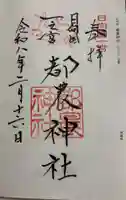 奉拝
日向國
一之宮
都農神社
令和八年二月十六日